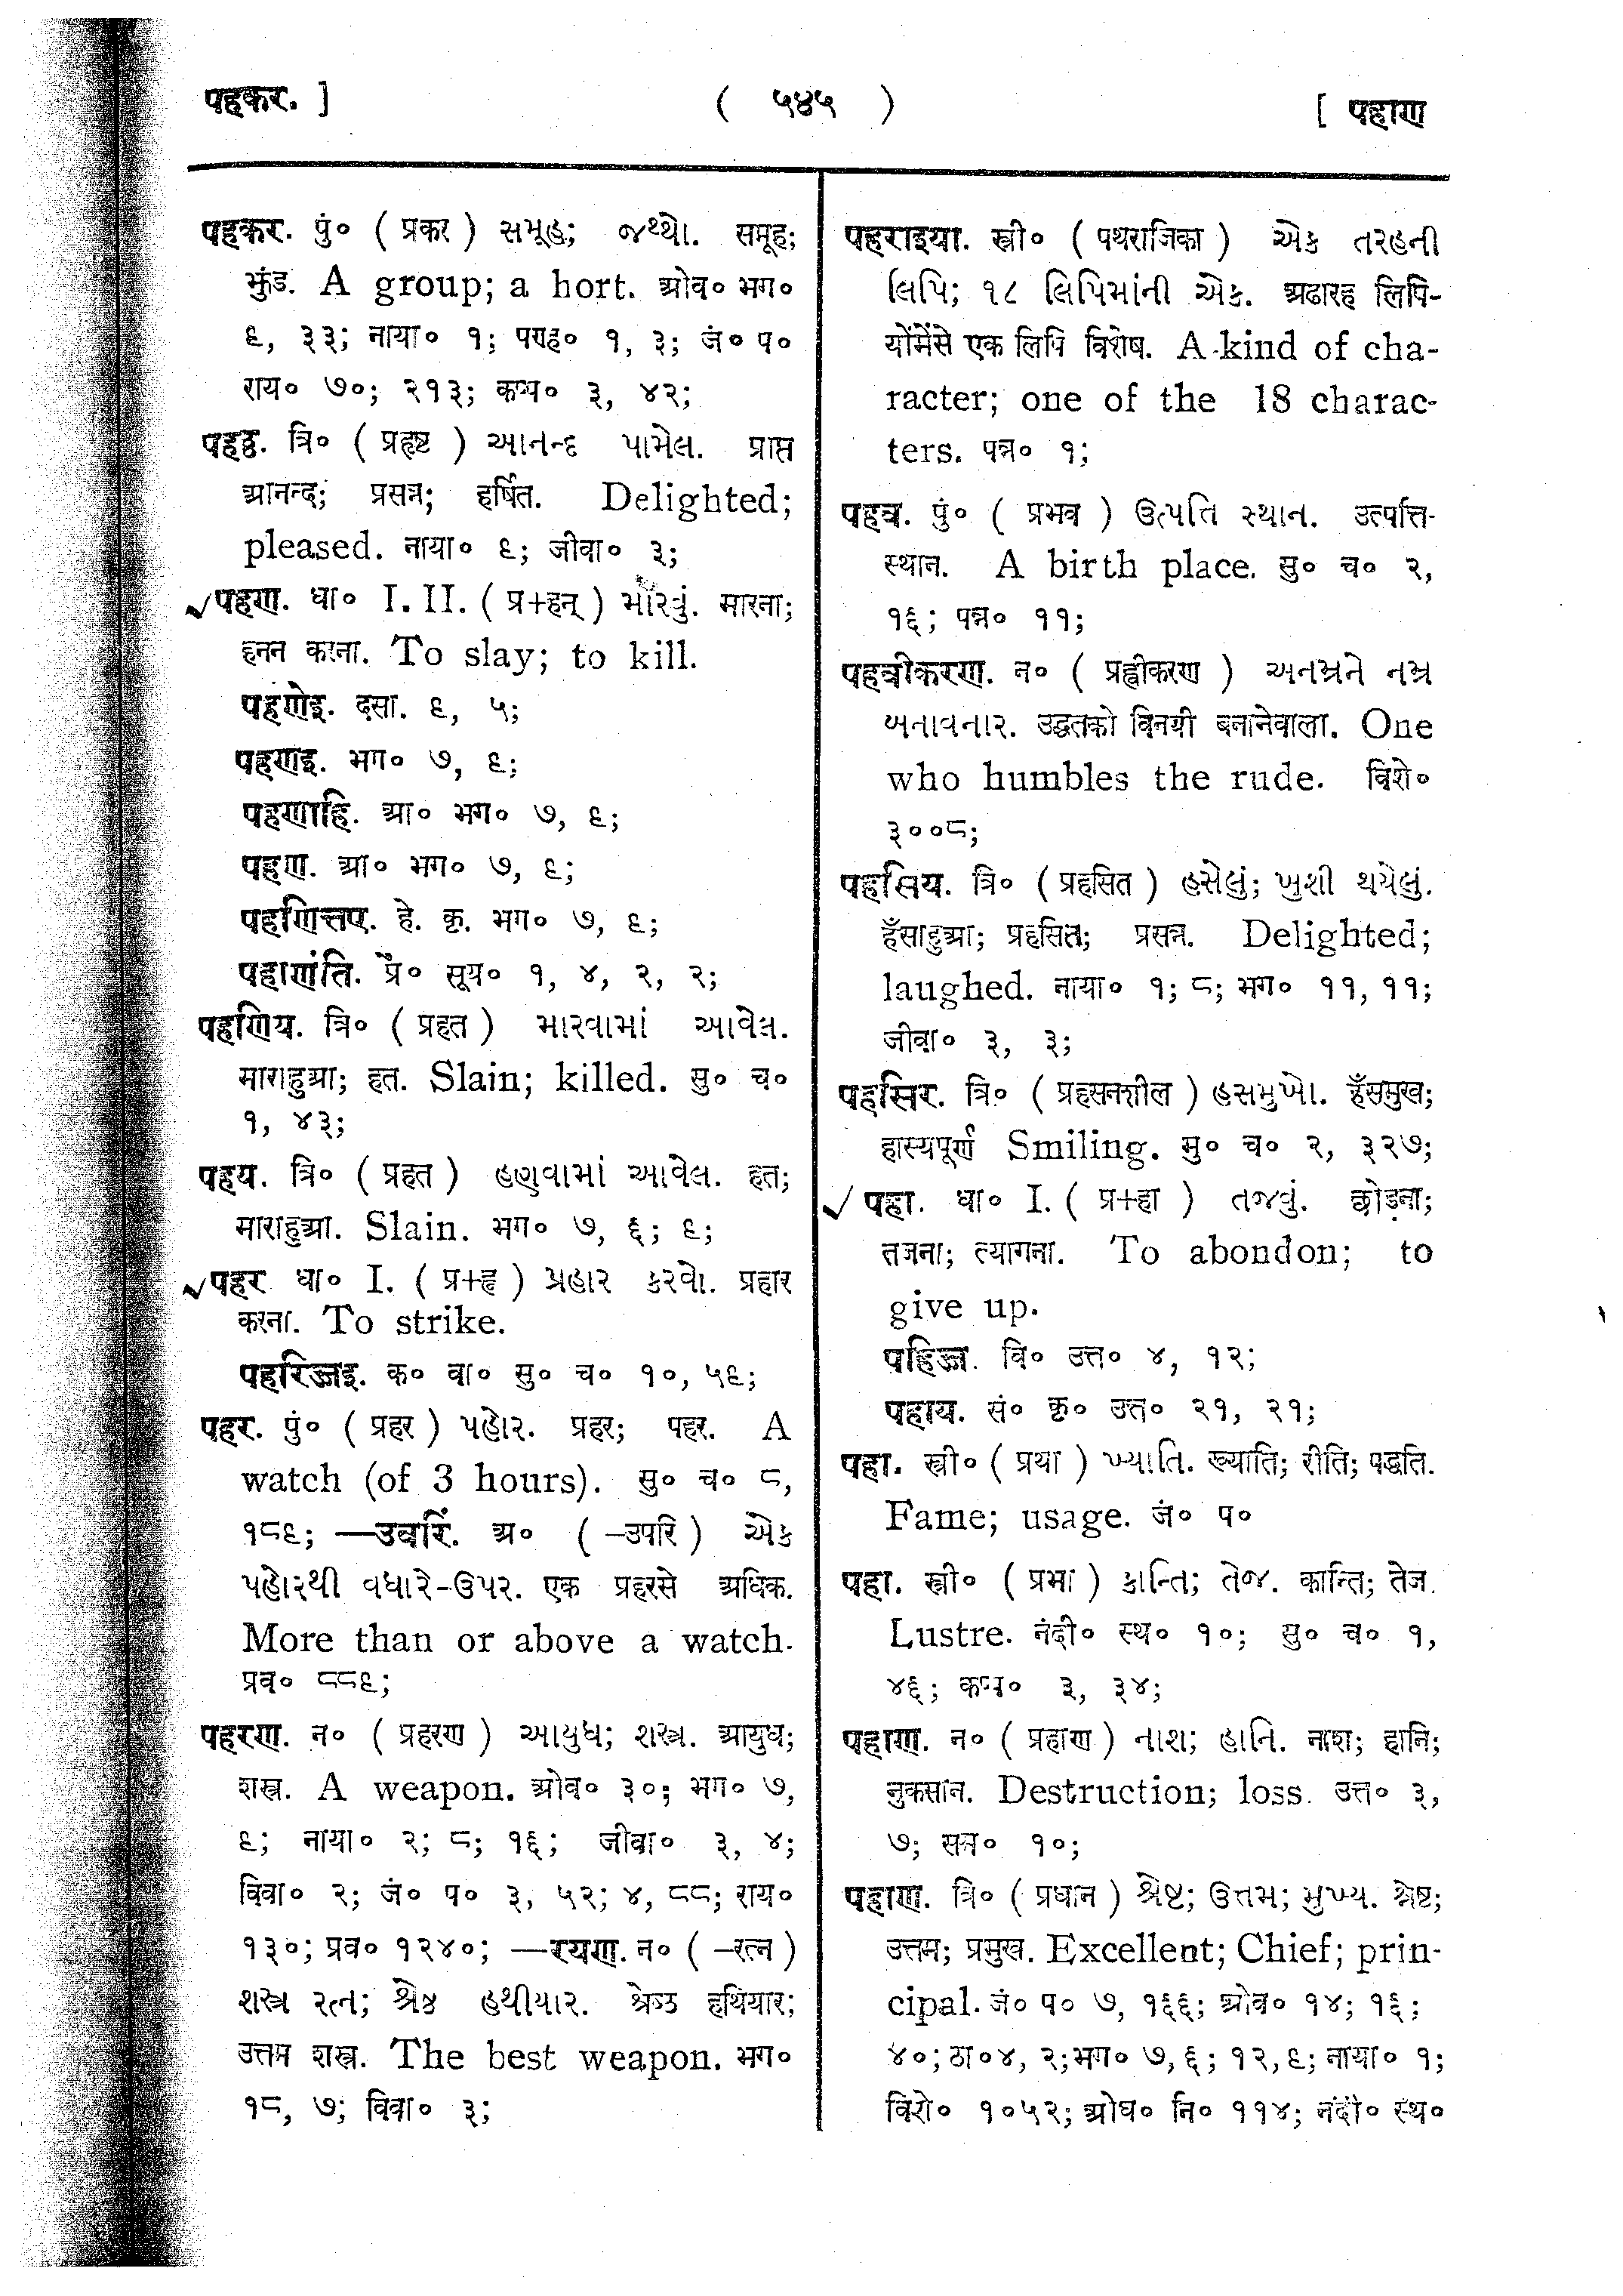 पहकर. ]
( ५४५ )
[ पहाण
पहकर. पुं० ( प्रकर ) સમૂહ; જથ્થો. समूह;
झुंड. A group; a hort. ओव० भग०
९, ३३; नाया० १; पण्ह० १, ३; जं० प०
राय० ७०; २१३; कप्प० ३, ४२;
पहट्ठ. त्रि० ( प्रहृष्ट ) આનન્દ પામેલ. प्राप्त
आनन्द; प्रसन्न; हर्षित. Delighted;
pleased. नाया० ९; जीवा० ३;
√पहण. धा० I. II. ( प्र+हन् ) મારવું. मारना;
हनन करना. To slay; to kill.
पहणेइ. दसा. ९, ५;
पहणइ. भग० ७, ९;
पहणाहि. आ० भग० ७, ९;
पहण. आ० भग० ७, ९;
पहणित्तए. हे. कृ. भग० ७, ९;
पहाणंति. प्रे० सूय० १, ४, २, २;
पहणिय. त्रि० ( प्रहत ) મારવામાં આવેલ.
माराहुआ; हत. Slain; killed. सु० च०
१, ४३;
पहय. त्रि० ( प्रहत ) હણવામાં આવેલ. हत;
माराहुआ. Slain. भग० ७, ६; ९;
√पहर धा० I. ( प्र+हृ ) પ્રહાર કરવો. प्रहार
करना. To strike.
पहरिज्जइ. क० वा० सु० च० १०, ५९;
पहर. पुं० ( प्रहर ) પહોર. प्रहर; पहर. A
watch (of 3 hours). सु० च० ८,
१८९; —उवरिं. अ० ( –उपरि ) એક
પહોરથી વધારે-ઉપર. एक प्रहरसे अधिक.
More than or above a watch.
प्रव० ८८९;
पहरण. न० ( प्रहरण ) આયુધ; શસ્ત્ર. आयुध;
शस्त्र. A weapon. ओव० ३०; भग० ७,
९; नाया० २; ८; १६; जीवा० ३, ४;
विवा० २; जं० प० ३, ५२; ४, ८८; राय०
१३०; प्रव० १२४०; —रयण. न० ( –रत्न )
શસ્ત્ર રત્ન; શ્રેષ્ઠ હથીયાર. श्रेष्ठ हथियार;
उत्तम शस्त्र. The best weapon. भग०
१८, ७; विवा० ३;
पहराइया. स्त्री० ( पथराजिका ) એક તરહની
લિપિ; ૧૮ લિપિમાંની એક. अढारह लिपि-
योंमेंसे एक लिपि विशेष. A kind of cha-
racter; one of the 18 charac-
ters. पन्न० १;
पहव. पुं० ( प्रभव ) ઉત્પતિ સ્થાન. उत्पत्ति-
स्थान. A birth place. सु० च० २,
१६; पन्न० ११;
पहवीकरण. न० ( प्रह्वीकरण ) અનમ્રને નમ્ર
બનાવનાર. उद्धतको विनयी बनानेवाला. One
who humbles the rude. विशे०
३००८;
पहसिय. त्रि० ( प्रहसित ) હસેલું; ખુશી થયેલું.
हँसाहुआ; प्रहसित; प्रसन्न. Delighted;
laughed. नाया० १; ८; भग० ११, ११;
जीवा० ३, ३;
पहसिर. त्रि० ( प्रहसनशील ) હસમુખો. हँसमुख;
हास्यपूर्ण Smiling. सु० च० २, ३२७;
√ पहा. धा० I. ( प्र+हा ) તજવું. छोडना;
तजना; त्यागना. To abondon; to
give up.
पहिज्ज. वि० उत्त० ४, १२;
पहाय. सं० कृ० उत्त० २१, २१;
पहा. स्त्री० ( प्रथा ) ખ્યાતિ. ख्याति; रीति; पद्धति.
Fame; usage. जं० प०
पहा. स्त्री० ( प्रभा ) કાન્તિ; તેજ. कान्ति; तेज.
Lustre. नंदी० स्थ० १०; सु० च० १,
४६; कप्प० ३, ३४;
पहाण. न० ( प्रहाण ) નાશ; હાનિ. नाश; हानि;
नुकसान. Destruction; loss. उत्त० ३,
७; सन्न० १०;
पहाण. त्रि० ( प्रधान ) શ્રેષ્ટ; ઉત્તમ; મુખ્ય. श्रेष्ट;
उत्तम; प्रमुख. Excellent; Chief; prin-
cipal. जं० प० ७, १६६; ओव० १४; १६;
४०; ठा० ४, २; भग० ७, ६; १२, ९; नाया० १;
विशे० १०५२; ओघ० नि० ११४; नंदी० स्थ०